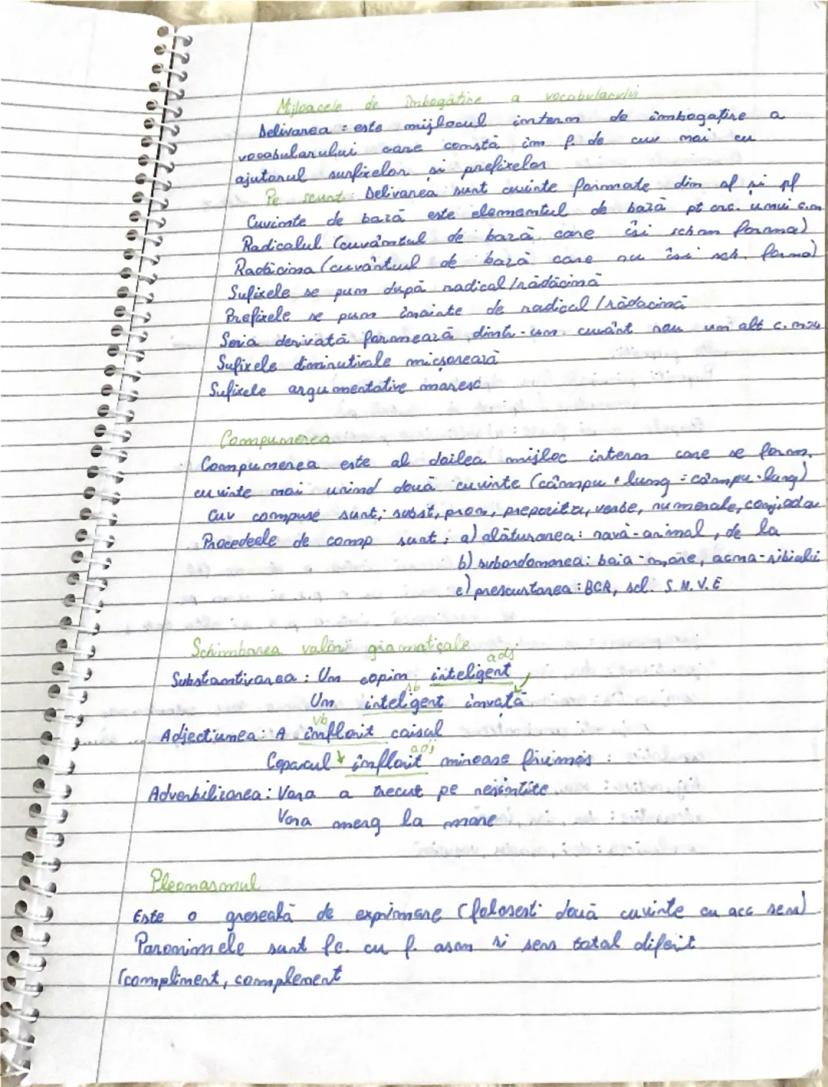 Mijloacele de îmbogățire a vocabularului
Delivarea : este mijlocul intern de îmbogațire a
vocabularului care constă în f. de cuv mai cu
ajutorul surfixelor și prefixelor
Pe scurt: Delivarea sunt cuvinte formate din sf și pf
Cuvinte de bază este elementul de bază pt crc. unui c.m
Radicalul (cuvântul de bază care își schim forma)
Radăcina (cuvântul de bază care nu își sch. forma)
Sufixele se pun după radical/rădăcină
Prefixele se pun înainte de radical/rădăcină
Seria derivată formează dintr-un cuvânt sau un alt c.
Sufixele diminutivale micșorează
Sufixele argumentative maresc
Compunerea
Compunerea este al doilea mijloc intern care se form.
cuvinte mai unind două cuvinte (câmpu + lung = câmpu-lung)
Cuv compuse sunt; subst, pron, prepoziții, verbe, numerale,
Procedeele de comp sunt : a) alăturarea: navă-animal, de la
b) subordonarea: baia-mare, acma-sibiului
c) prescurtarea: BCR, scl. S.N.V.E
Schimbarea valorii gramaticale
adj
Substantivarea : Un copin inteligent
sb
Un inteligent învață
vb
Adjectiunea: A înflorit caisul
adj
Copacul înflorit miroase frumos :
Adverbilizarea: Vara a trecut pe nesimțite
Vara merg la mare
Pleonasmul
Este o greseală de exprimare (folosesti două cuvinte cu acc sens)
Paronimele sunt fc. cu f. asem si sens total diferit
(compliment, complement